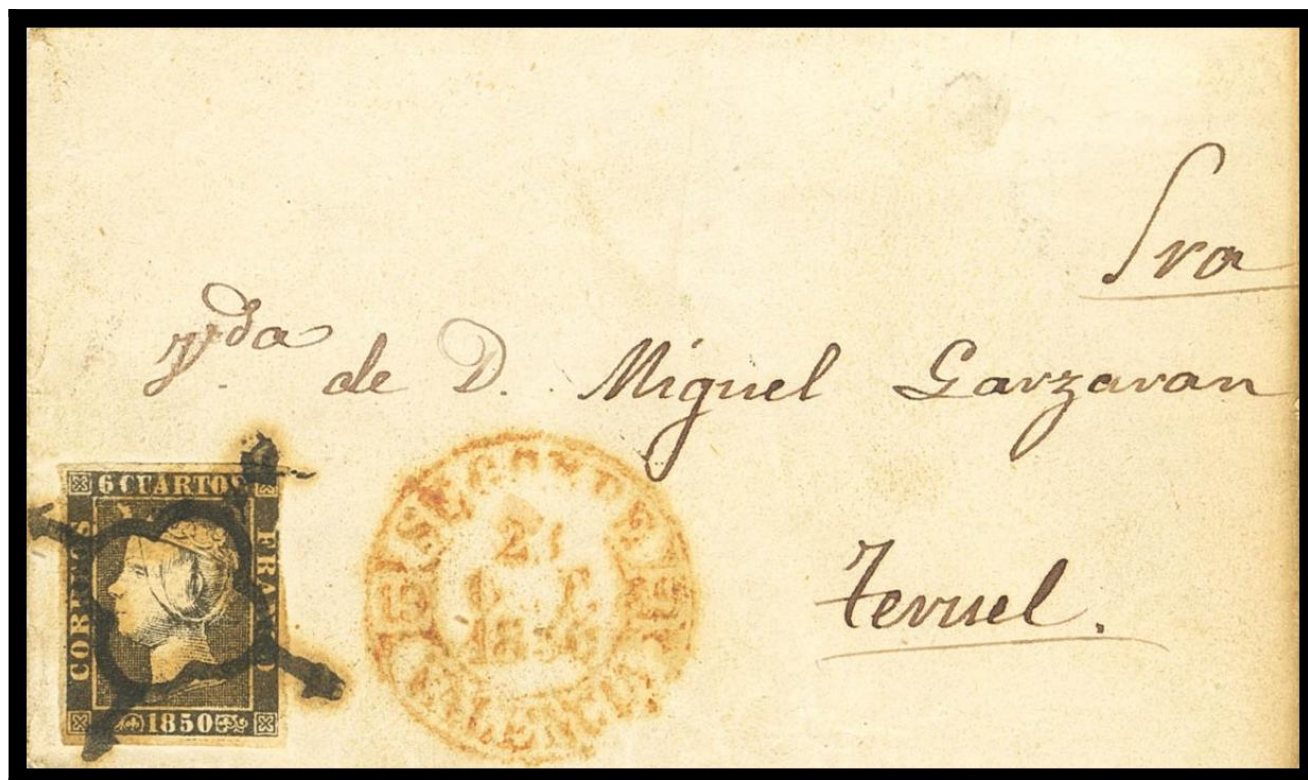 Sra
Vda de D. Miguel Garzaran
Teruel.
6 CUARTOS
CORREOS
FRANCO
1850
SEGORBE
VALENCIA